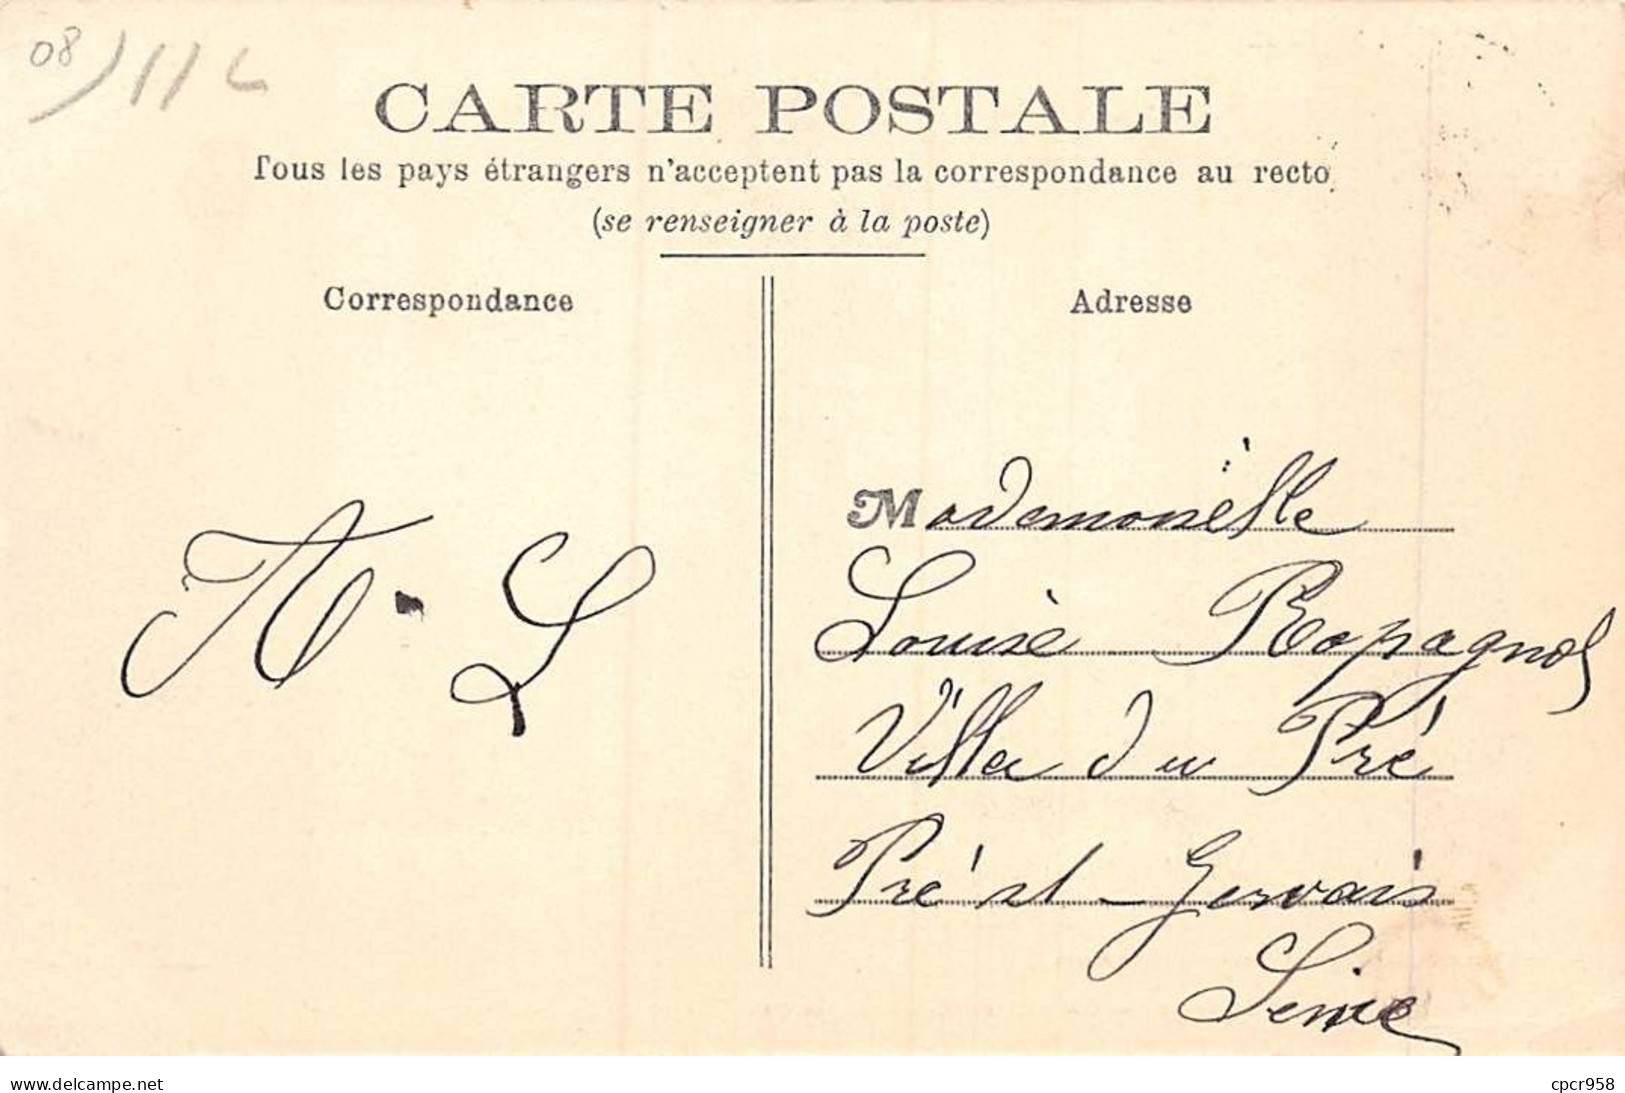 08
CARTE POSTALE
Tous les pays étrangers n'acceptent pas la correspondance au recto
(se renseigner à la poste)
Correspondance
Adresse
L
Mademoiselle
Louise Ropagnol
Villa du Pré
Pré St-Gervais
Seine
www.delcampe.net
cpcr958